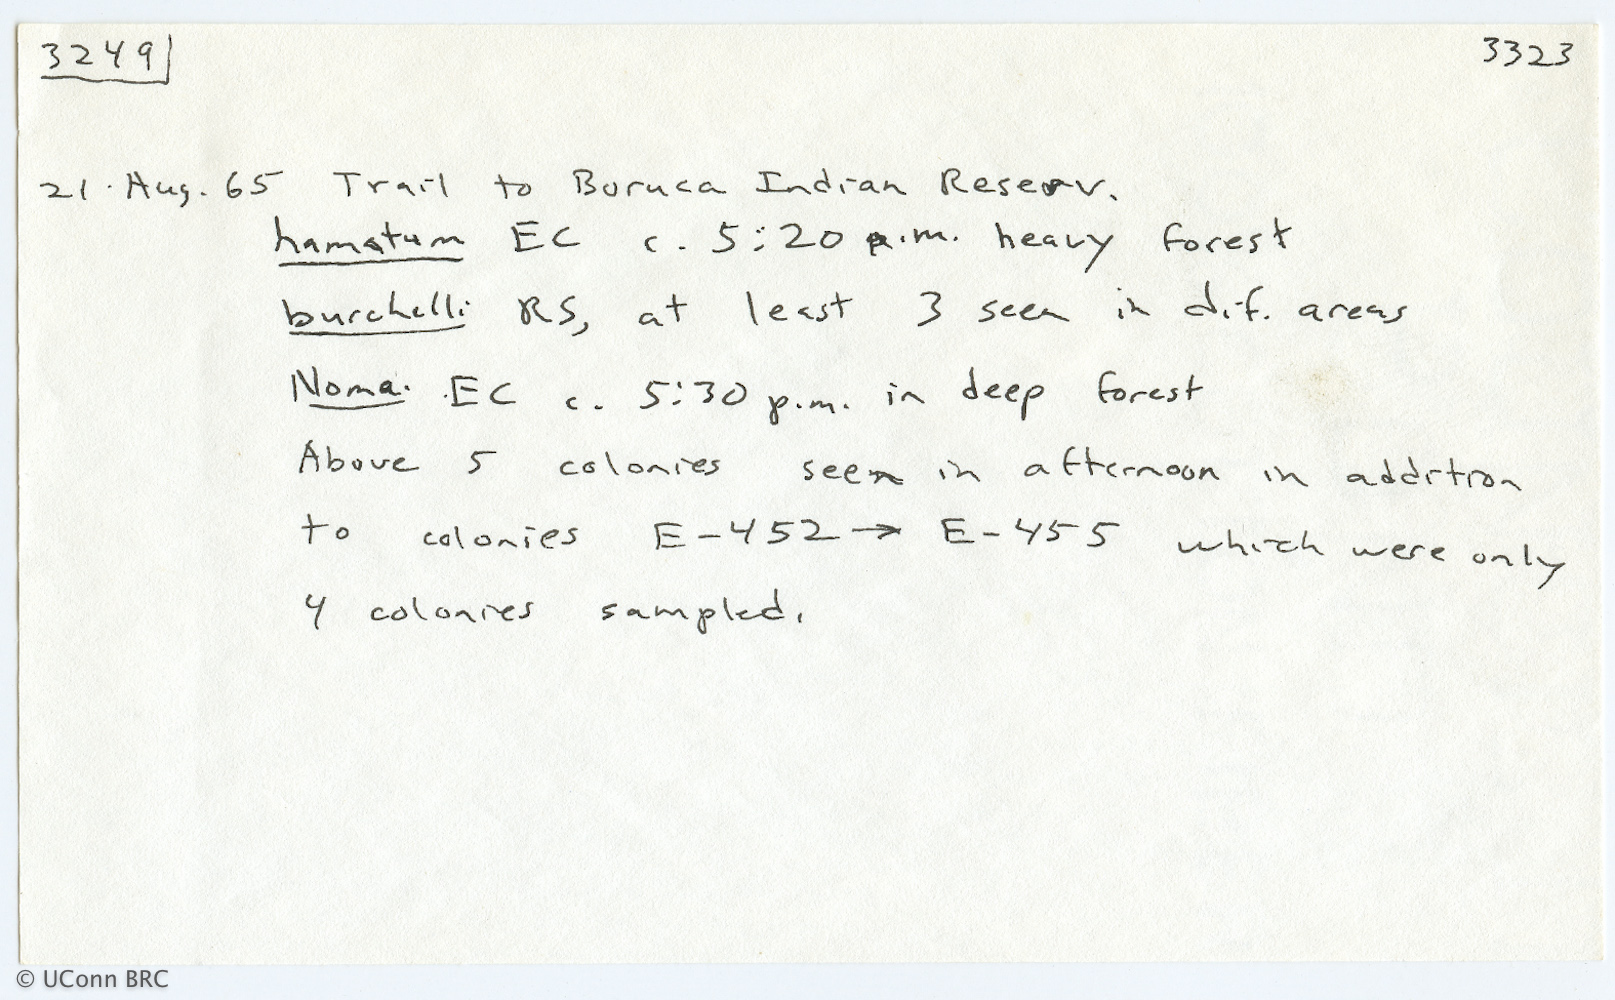 3249
3323
21. Aug. 65 Trail to Boruca Indian Reserv.
hamatum EC c. 5:20 p.m. heavy forest
burchelli RS, at least 3 seen in dif. areas
Noma. EC c. 5:30 p.m. in deep forest
Above 5 colonies seen in afternoon in addition
to colonies E-452 → E-455 which were only
4 colonies sampled.
© UConn BRC